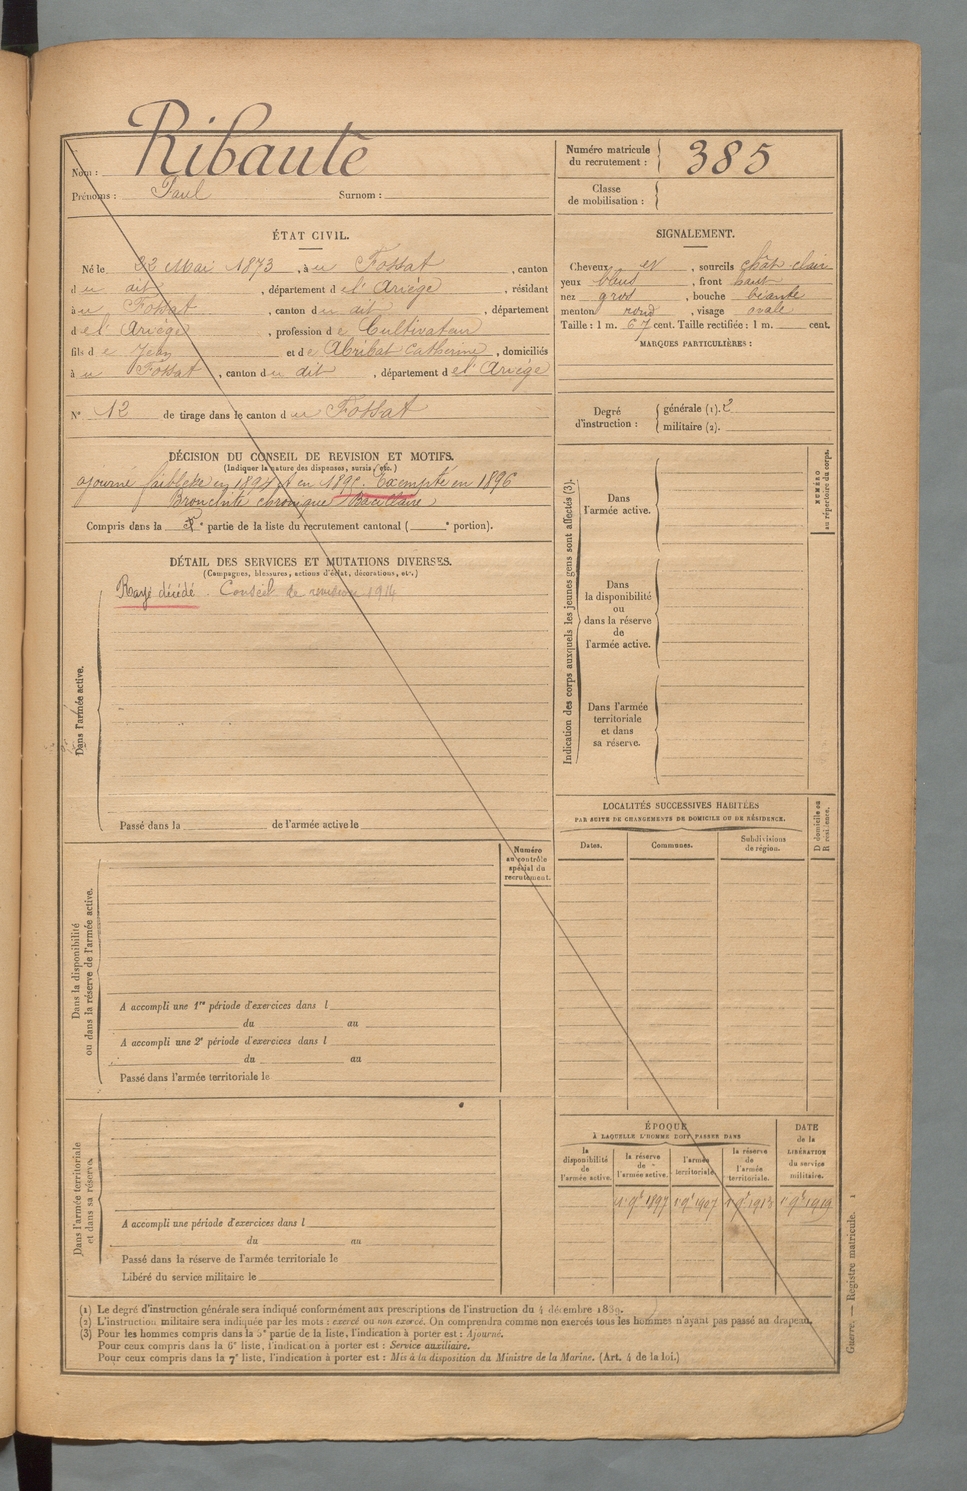 Nom : Ribaute
Prénoms : Paul Surnom :
Numéro matricule
du recrutement : 385
Classe
de mobilisation :
ÉTAT CIVIL.
Né le 22 Mai 1873, à u Fossat, canton
d u dit, département d e l'Ariège, résidant
à u Fossat, canton d u dit, département
d e l'Ariège, profession d e Cultivateur
fils d e Jean et d e Abribat Catherine, domiciliés
à u Fossat, canton d u dit, département d e l'Ariège
N° 12 de tirage dans le canton d u Fossat
SIGNALEMENT.
Cheveux et, sourcils chât clair
yeux bleus, front haut
nez gros, bouche béante
menton rond, visage ovale
Taille : 1 m. 67 cent. Taille rectifiée : 1 m. cent.
MARQUES PARTICULIÈRES :
Degré
d'instruction :
générale (1). 2
militaire (2).
DÉCISION DU CONSEIL DE REVISION ET MOTIFS.
(Indiquer la nature des dispenses, sursis, etc.)
ajourné faiblesse en 1894 et en 1895. Exempté en 1896
Bronchite chronique Bacillaire
Compris dans la e partie de la liste du recrutement cantonal ( e portion).
DÉTAIL DES SERVICES ET MUTATIONS DIVERSES.
(Campagnes, blessures, actions d'éclat, décorations, etc.)
Rayé décédé. Conseil de revision 1914
Dans l'armée active.
Passé dans la de l'armée active le
Indication des corps auxquels les jeunes gens sont affectés (3).
Dans
l'armée active.
Dans
la disponibilité
ou
dans la réserve
de
l'armée active.
Dans l'armée
territoriale
et dans
sa réserve.
NUMÉRO
au répertoire du corps.
LOCALITÉS SUCCESSIVES HABITÉES
PAR SUITE DE CHANGEMENTS DE DOMICILE OU DE RÉSIDENCE.
Dates. Communes. Subdivisions
de région.
D domicile ou
R résidence.
Numéro
au contrôle
spécial du
recrutement.
Dans la disponibilité
ou dans la réserve de l'armée active.
A accompli une 1re période d'exercices dans l
du au
A accompli une 2e période d'exercices dans l
du au
Passé dans l'armée territoriale le
Dans l'armée territoriale
et dans sa réserve.
A accompli une période d'exercices dans l
du au
Passé dans la réserve de l'armée territoriale le
Libéré du service militaire le
ÉPOQUE
À LAQUELLE L'HOMME DOIT PASSER DANS
la
disponibilité
de
l'armée active.
la réserve
de
l'armée active.
l'armée
territoriale.
la réserve
de
l'armée
territoriale.
DATE
de la
LIBÉRATION
du service
militaire.
1er 9bre 1897 1er 9bre 1907 1er 9bre 1913 1er 9bre 1919
(1) Le degré d'instruction générale sera indiqué conformément aux prescriptions de l'instruction du 4 décembre 1889.
(2) L'instruction militaire sera indiquée par les mots : exercé ou non exercé. On comprendra comme non exercés tous les hommes n'ayant pas passé au drapeau.
(3) Pour les hommes compris dans la 5e partie de la liste, l'indication à porter est : Ajourné.
Pour ceux compris dans la 6e liste, l'indication à porter est : Service auxiliaire.
Pour ceux compris dans la 7e liste, l'indication à porter est : Mis à la disposition du Ministre de la Marine. (Art. 4 de la loi.)
Guerre. — Registre matricule. 1